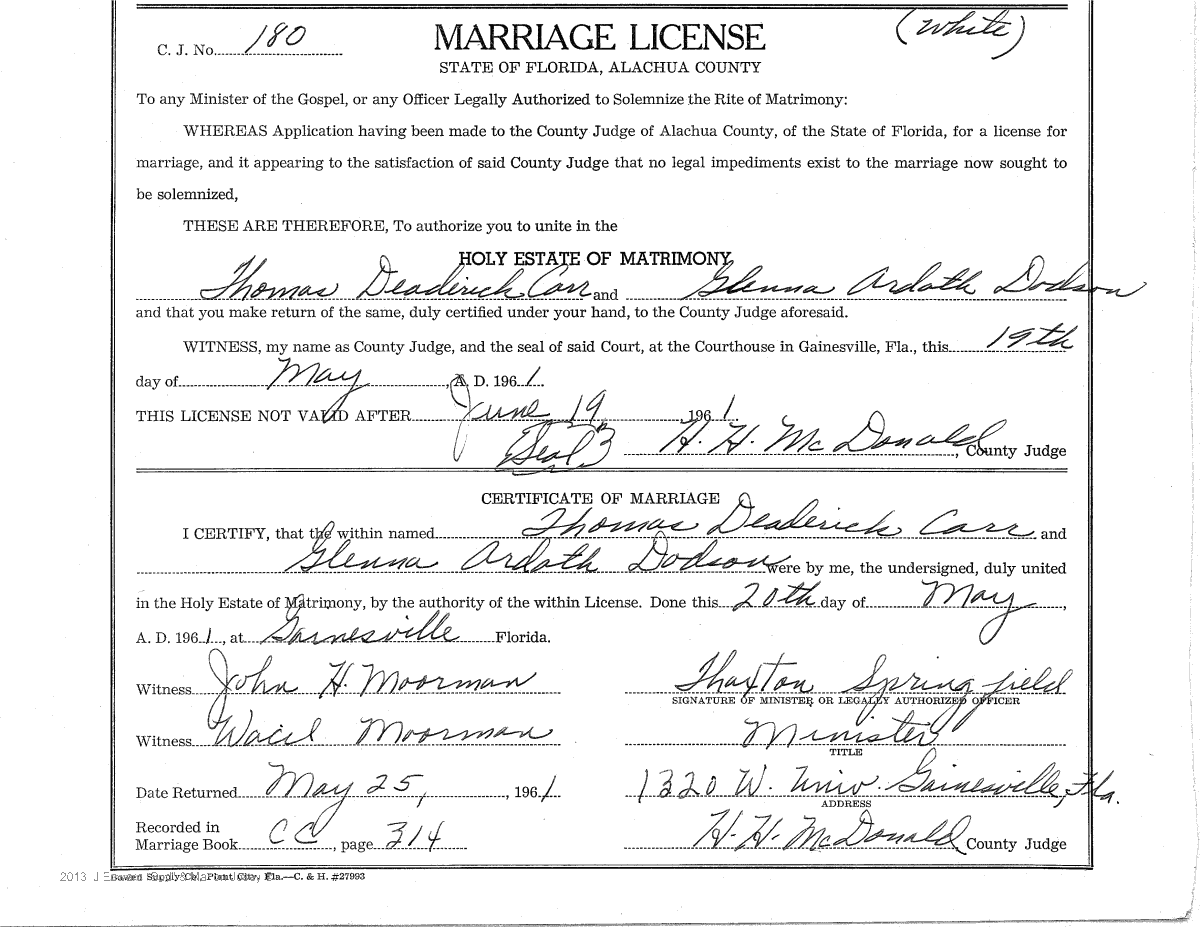 C. J. No. 180 MARRIAGE LICENSE (White)
STATE OF FLORIDA, ALACHUA COUNTY
To any Minister of the Gospel, or any Officer Legally Authorized to Solemnize the Rite of Matrimony:
WHEREAS Application having been made to the County Judge of Alachua County, of the State of Florida, for a license for
marriage, and it appearing to the satisfaction of said County Judge that no legal impediments exist to the marriage now sought to
be solemnized,
THESE ARE THEREFORE, To authorize you to unite in the
HOLY ESTATE OF MATRIMONY
Thomas Deaderick Carr and Glenna Ardath Dodson
and that you make return of the same, duly certified under your hand, to the County Judge aforesaid.
WITNESS, my name as County Judge, and the seal of said Court, at the Courthouse in Gainesville, Fla., this 19th
day of May, A. D. 1961.
THIS LICENSE NOT VALID AFTER June 19, 1961.
Seal H. H. McDonald, County Judge
CERTIFICATE OF MARRIAGE
I CERTIFY, that the within named Thomas Deaderick Carr and
Glenna Ardath Dodson were by me, the undersigned, duly united
in the Holy Estate of Matrimony, by the authority of the within License. Done this 20th day of May,
A. D. 1961, at Gainesville Florida.
Witness John H. Moorman Thaxton Springfield
SIGNATURE OF MINISTER OR LEGALLY AUTHORIZED OFFICER
Witness Moorman Minister
TITLE
Date Returned May 25, 1961 1320 W. Univ. Gainesville, Fla.
ADDRESS
Recorded in
Marriage Book CC, page 314 H. H. McDonald County Judge
2013 Supply Co., Plant City, Fla.—C. & H. #27993